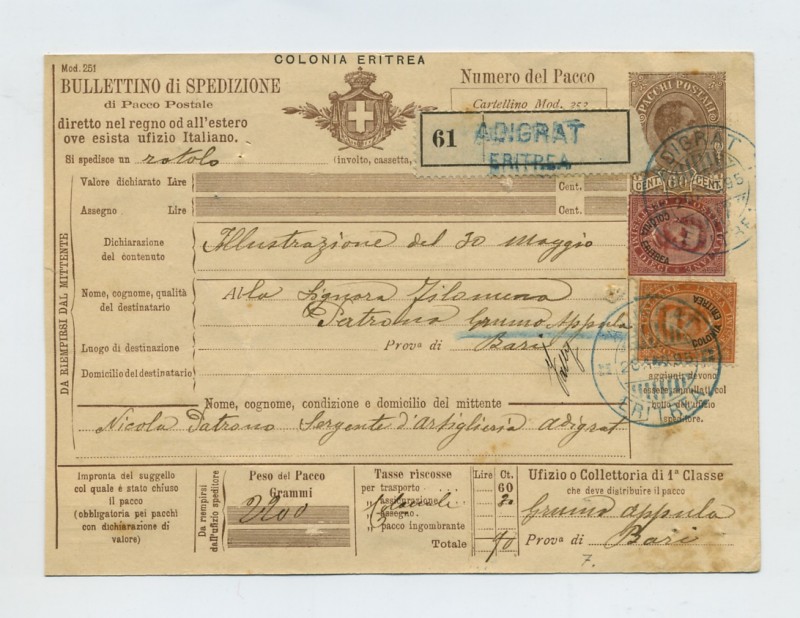 COLONIA ERITREA
Mod. 251
BULLETTINO di SPEDIZIONE
di Pacco Postale
diretto nel regno od all'estero
ove esista ufizio Italiano.
Si spedisce un rotolo (involto, cassetta,
Numero del Pacco
Cartellino Mod. 252
61 ADIGRAT
ERITREA
PACCHI POSTALI
CENT. 60 CENT.
ADIGRAT
95
COLONIA ERITREA
COLONIA ERITREA
95
ERITREA
DA RIEMPIRSI DAL MITTENTE
Valore dichiarato Lire Cent.
Assegno Lire Cent.
Dichiarazione del contenuto
Illustrazione del 30 Maggio
Nome, cognome, qualità del destinatario
Alla Signora Filomena
Patrono Grumo Appula
Luogo di destinazione
Prova di Bari
Domicilio del destinatario
aggiunti devono
essere annullati col
bollo dell'ufizio
speditore.
Nome, cognome, condizione e domicilio del mittente
Nicola Patrono Sergente d'Artiglieria Adigrat
Impronta del suggello
col quale è stato chiuso
il pacco
(obbligatoria pei pacchi
con dichiarazione di
valore)
Da riempirsi dall'ufizio speditore
Peso del Pacco
Grammi
2200
Tasse riscosse Lire Ct.
per trasporto 60
assicurazione
assegno
pacco ingombrante
Totale
Ufizio o Collettoria di 1ª Classe
che deve distribuire il pacco
Grumo Appula
Prova di Bari
7.